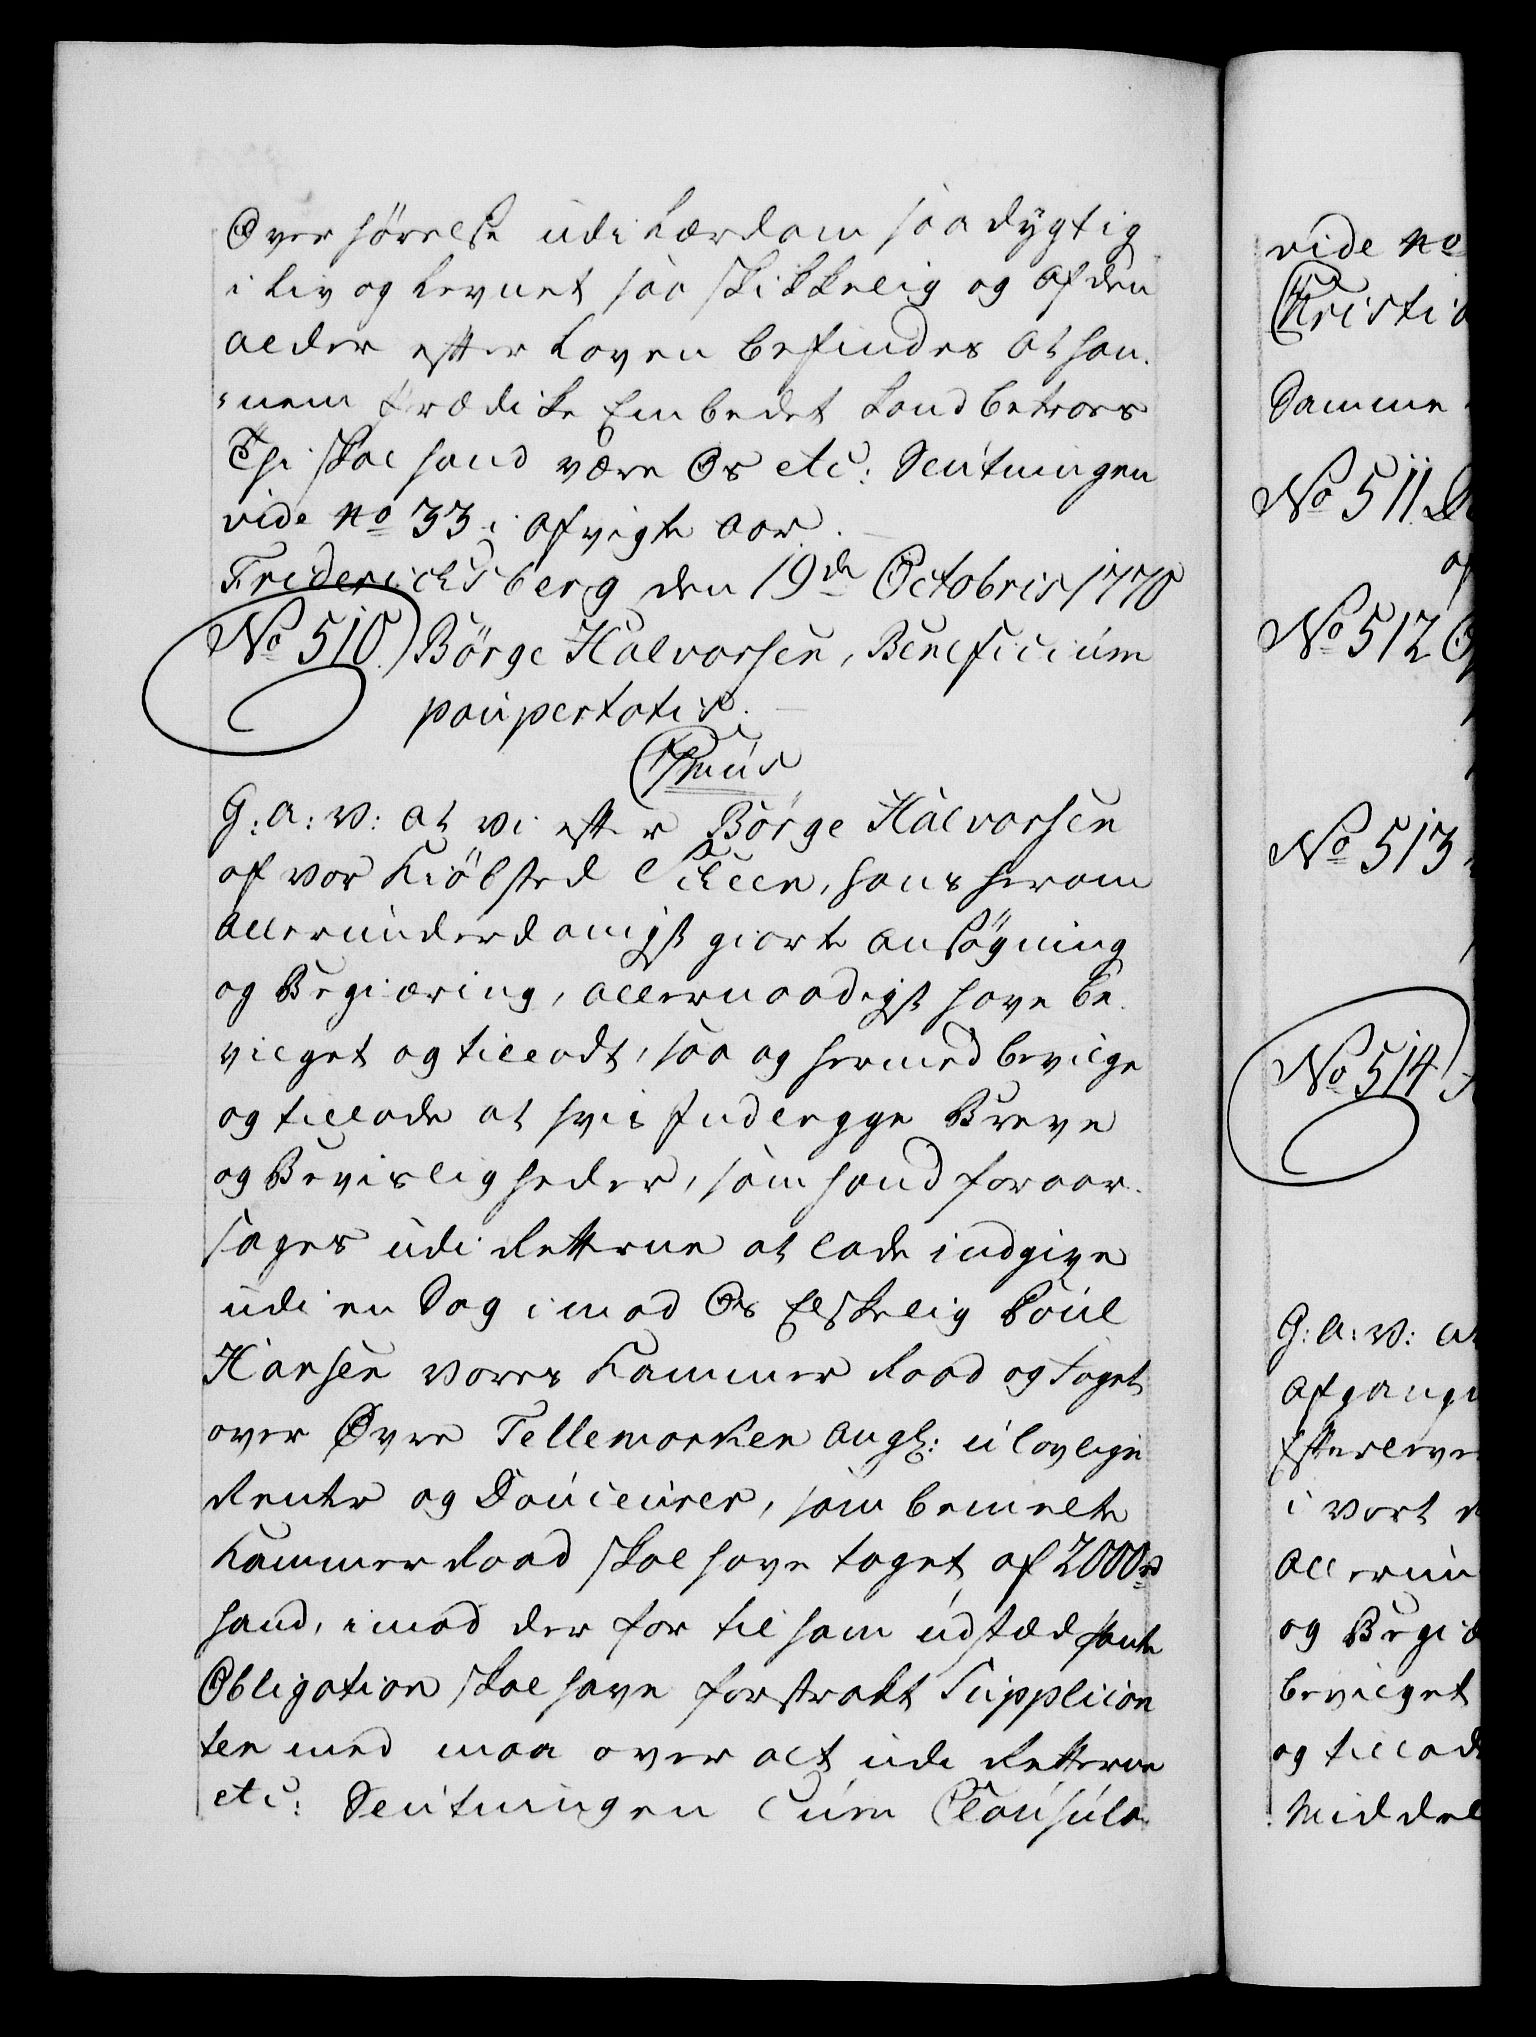 Overhørelse udi Lærdom saa dygtig
i Liv og Levnet saa skikkelig og af den
alder efter Loven befindes at han-
nem Prædike Embedet kand betroes
Thi skal hand være Os etc: Slutningen
vide No 33 i afvigte aar.
Friderichsberg den 19de Octobris 1770
No 510. Børge Halvorsen, Beneficium
paupertatis.
G: A: V: at vi efter Børge Halvorsen
af vor Kiöbsted Scheen, hans herom
allerunderdanigst giorte ansøgning
og Begiæring, allernaadigst have be-
vilget og tilladt, saa og hermed bevilge
og tillade at hvis Indlegge Breve
og Bevisligheder, som hand foraar-
sages udi Retterne at lade indgive
udi en Sag imod Os Elskelig Poul
Hansen vores Kammer Raad og Foget
over Øvre Tellemarken angl: ulovlige
Renter og Douceurer, som bemelte
Kammer Raad skal have taget af 2000 rd
hand, imod der for til ham udstæd
Obligation skal have forstrakt Supplican
ten med maa over alt udi Retterne
etc: Slutningen Cum Clausula
vide No
Christia
Samme
No 511
No 512
No 513
No 514
G: A: V: at
Afgangn
Efterleve
i vort
Allerun
og Begiæ
bevilget
og tillade
Middel